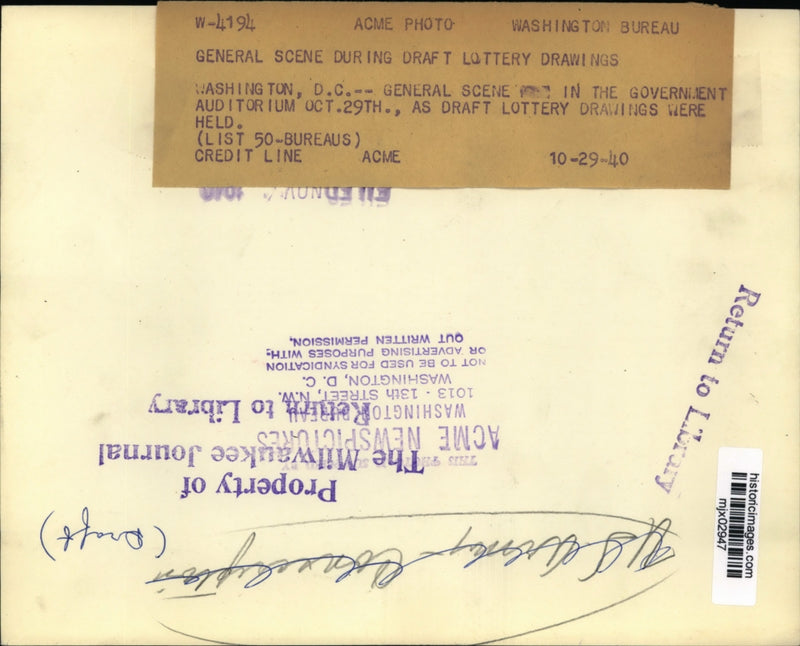 W-4194 ACME PHOTO WASHINGTON BUREAU
GENERAL SCENE DURING DRAFT LOTTERY DRAWINGS
WASHINGTON, D.C.-- GENERAL SCENE IN THE GOVERNMENT
AUDITORIUM OCT.29TH., AS DRAFT LOTTERY DRAWINGS WERE
HELD.
(LIST 50-BUREAUS)
CREDIT LINE ACME 10-29-40
FILED NOV
Return to Library
historicimages.com
mjx02947
Property of
The Milwaukee Journal
Return to Library
ACME NEWSPICTURES
WASHINGTON BUREAU
1013 - 13th STREET, N.W.
WASHINGTON, D. C.
NOT TO BE USED FOR SYNDICATION
OR ADVERTISING PURPOSES WITH-
OUT WRITTEN PERMISSION.
U S Army - Conscription
(Draft)